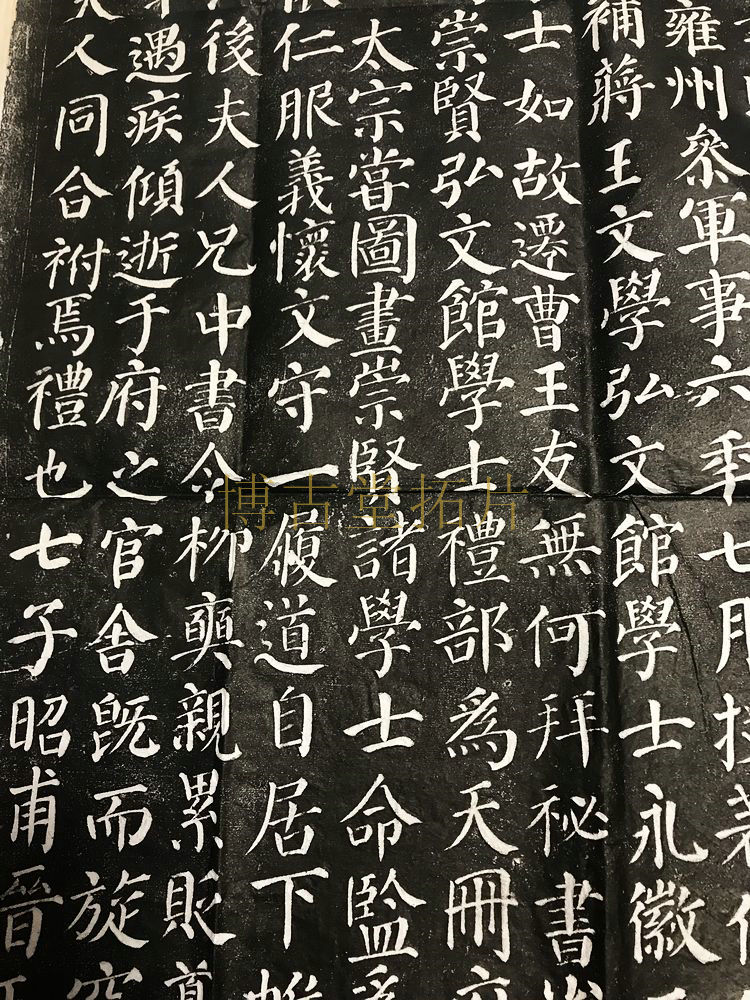 雍州叅軍事六秊七月授著
補蔣王文學弘文館學士永徽
士如故遷曹王友無何拜祕書省
崇賢弘文館學士禮部爲天冊府
太宗甞圖畫崇賢諸學士命監爲
依仁服義懷文守一履道自居下帷
後夫人兄中書令柳奭親累貶
遇疾傾逝于府之官舍旣而旋窆
夫人同合祔焉禮也七子昭甫晉
博古堂拓片